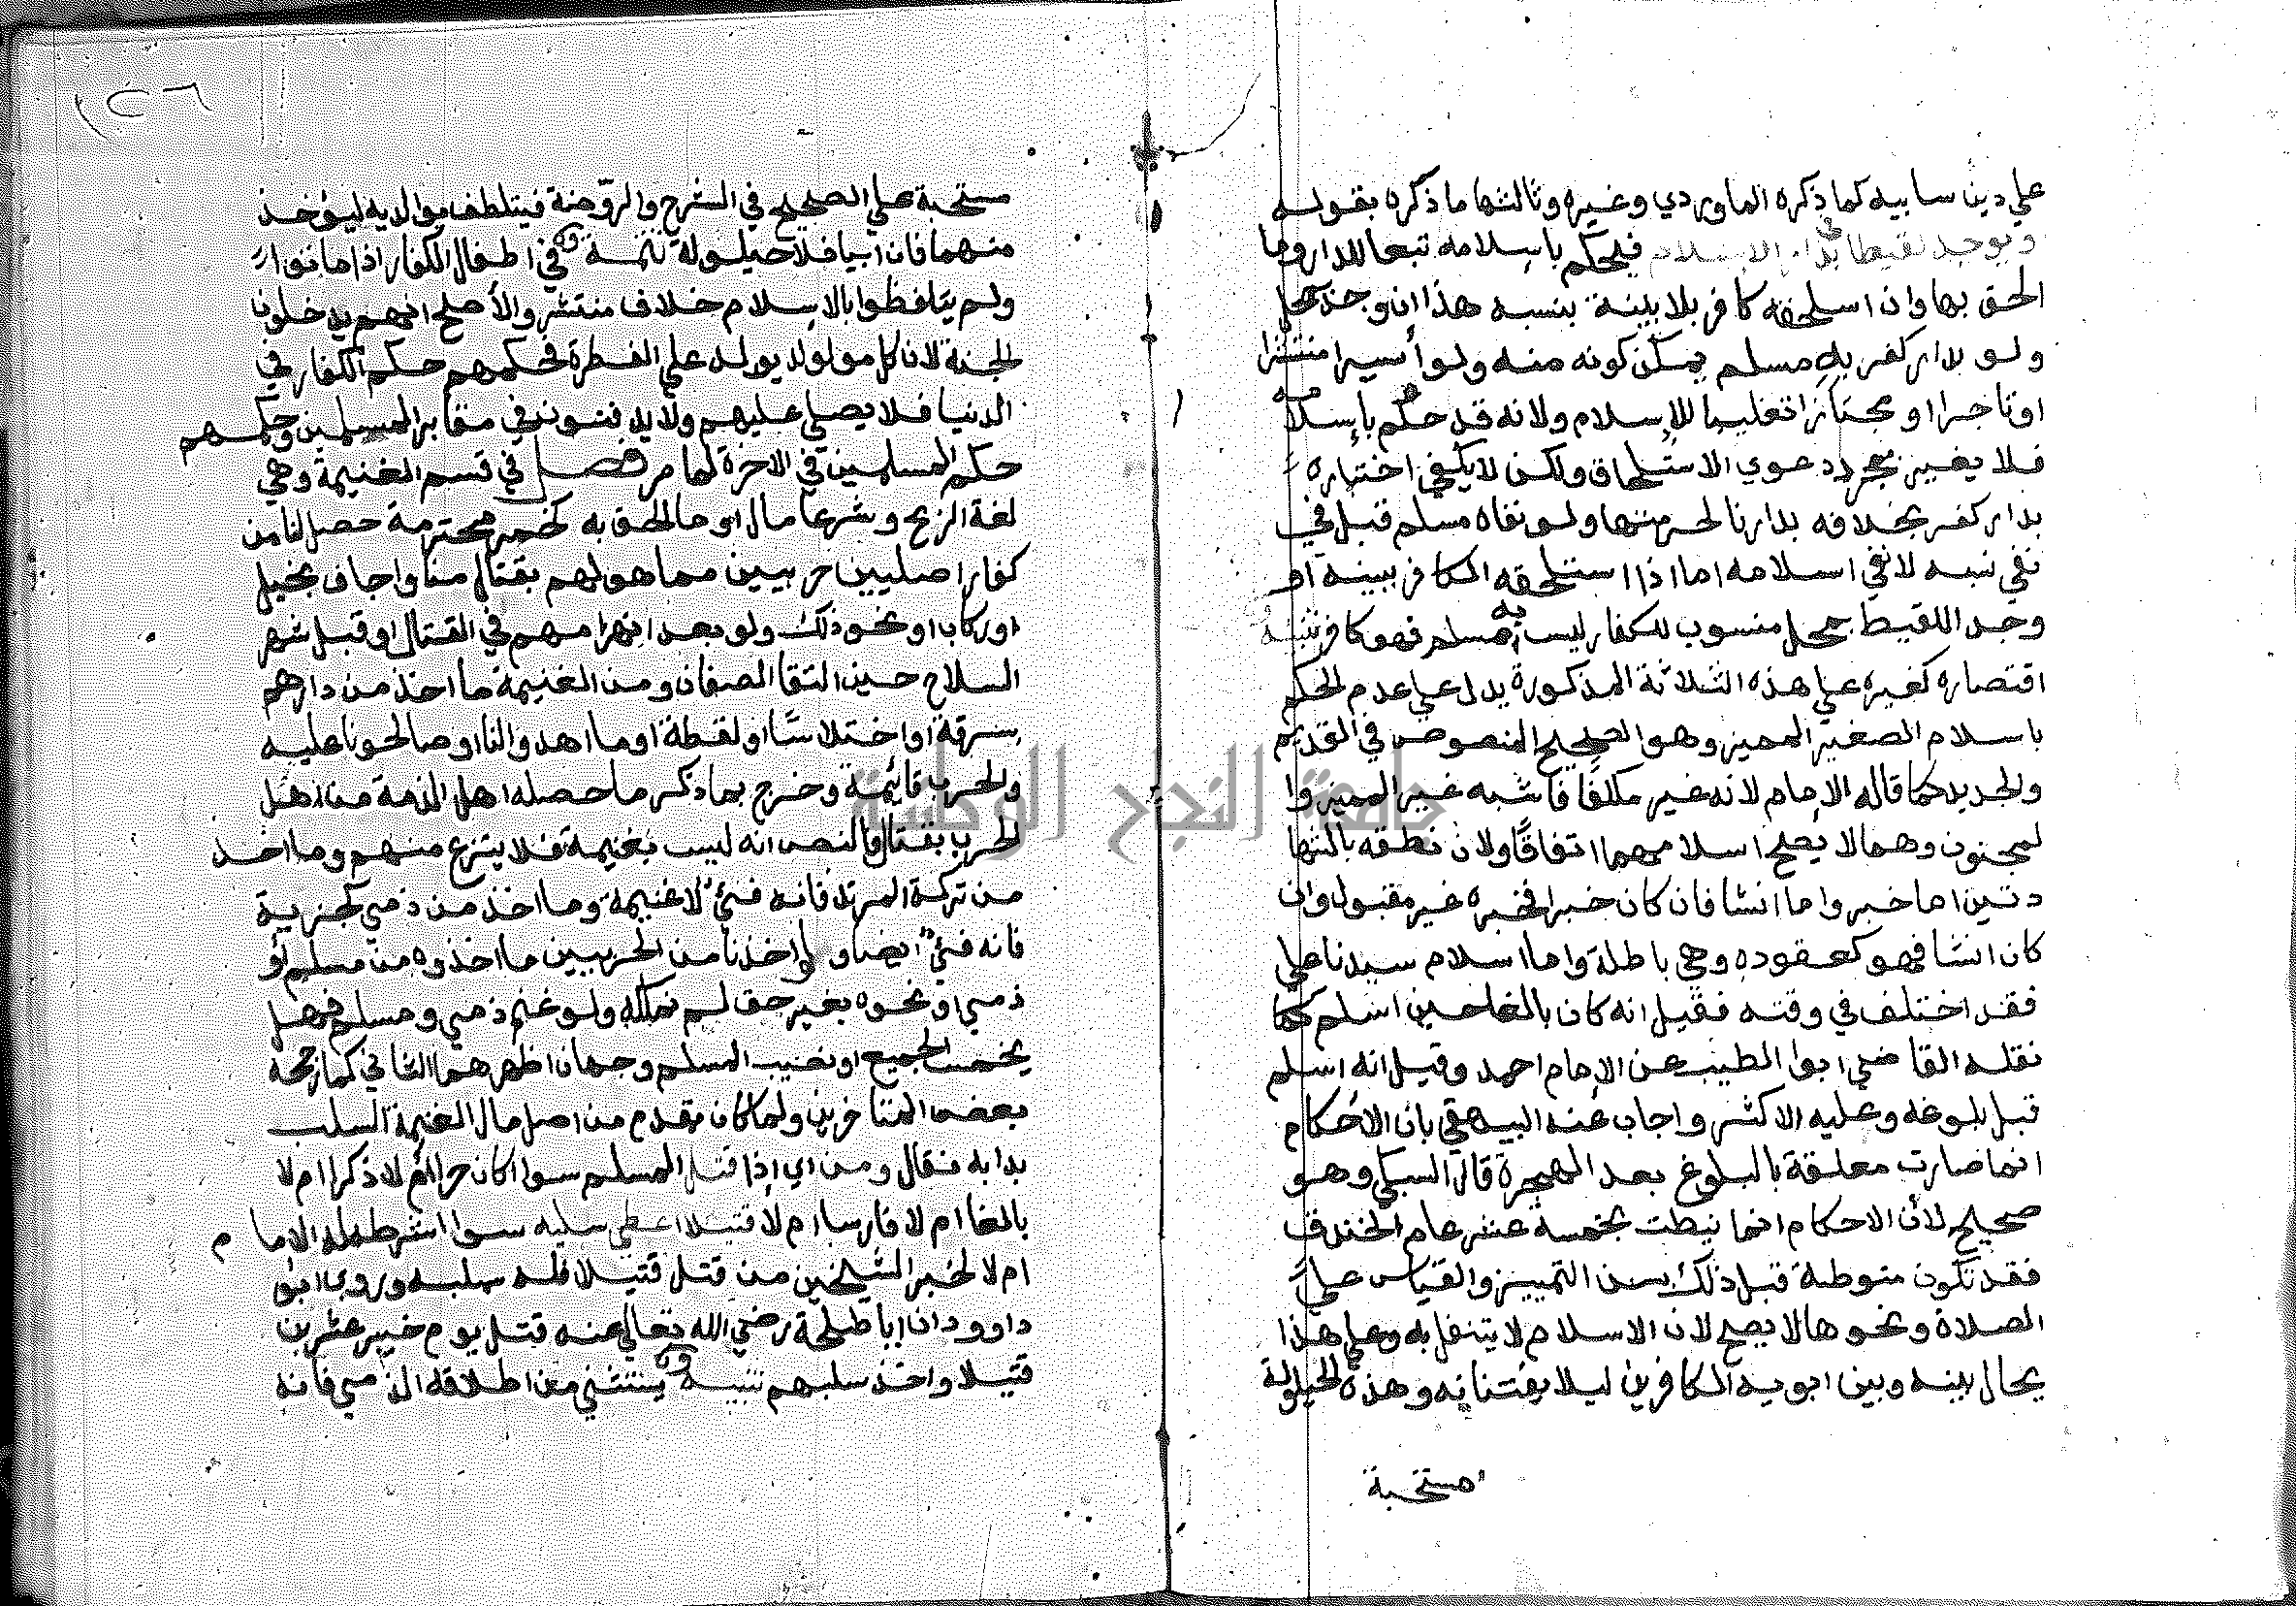 علي دين سابيه كما ذكره الماوردي وغيره وثالثها ما ذكره بقوله
ويوجد لقيطا بدار الاسلام فيحكم باسلامه تبعا للدار وما
الحق بها وان استلحقه كافر بلا بينة بنسبه هذا ان وجد بمحل
ولو بدار كفر به مسلم يمكن كونه منه ولو أسيرا منتشرا
او تاجرا او مجتازا تغليبا للإسلام ولانه قد حكم بإسلامه
فلا يغير بمجرد دعوي الاستلحاق ولكن لا يكفي اجتيازه
بدار كفر بخلافه بدارنا لحرمتها ولو نفاه مسلم قبل في
نفي نسبه لا نفي اسلامه اما اذا استلحقه الكافر ببينة او
وجد اللقيط بمحل منسوب للكفار ليس به مسلم فهو كافر تنبيه
اقتصاره كغيره علي هذه الثلاثة المذكورة يدل علي عدم الحكم
باسلام الصغير المميز وهو الصحيح المنصوص في القديم
والجديد كما قاله الإمام لانه غير مكلف فاشبه غير المميز وا
لمجنون وهما لا يصح اسلامهما اتفاقا ولان نطقه بالشها
دتين اما خبر واما انشا فان كان خبرا فخبره غير مقبول وان
كان انشا فهو كعقوده وهي باطلة واما اسلام سيدنا علي
فقد اختلف في وقته فقيل انه كان بالغا حين اسلم كما
نقله القاضي ابوا الطيب عن الإمام احمد وقيل انه اسلم
قبل بلوغه وعليه الاكثر واجاب عنه البيهقي بان الاحكام
انما صارت معلقة بالبلوغ بعد الهجرة قال السبكي وهو
صحيح لأن الاحكام انما نيطت بخمسة عشر عام الخندق
فقد تكون منوطة قبل ذلك بسن التمييز والقياس علي
الصلاة ونحوها لا يصح لان الاسلام لا يتنفل به وعلي هذا
يحال بينه وبين ابويه الكافرين ليلا يفتنانه وهذه الحيلولة
مستحبة
مستحبة علي الصحيح في الشرح والروضة فيتلطف بوالديه ليؤخذ
منهما فان ابيا فلا حيلولة تتمة في اطفال الكفار اذا ماتوا
ولم يتلفظوا بالاسلام خلاف منتشر والأصح انهم يدخلون
الجنة لان كل مولود يولد علي الفطرة فحكمهم حكم الكفار في
الدنيا فلا يصلي عليهم ولا يدفنون في مقابر المسلمين وحكمهم
حكم المسلمين في الاخرة لما مر فصل في قسم الغنيمة وهي
لغة الربح وشرعا مال او ما الحق به كخمر محترمة حصل لنا من
كفار اصليين حربيين مما هو لهم بقتال منا وايجاف بخيل
او ركاب او نحو ذلك ولو بعد انهزامهم في القتال او قبل شهر
السلاح حين التقا الصفان ومن الغنيمة ما اخذ من دارهم
سرقة او اختلاسا او لقطة او ما اهدوا لنا او صالحونا عليه
والحرب قائمة وخرج بما ذكر ما حصله اهل الذمة من اهل
الحرب بقتال فالنص انه ليس بغنيمة فلا ينتزع منهم وما اخذ
من تركة المرتد فانه فيئ لا غنيمة وما اخذ من ذمي كجزية
فانه فيئ ايضا ولو اخذنا من الحربيين ما اخذوه من مسلم أو
ذمي او نحوه بغير حق لم نملكه ولو غنم ذمي ومسلم فهل
يخمس الجميع او نصيب المسلم وجهان اظهرهما الثاني كما رجحه
بعض المتاخرين ولما كان مقدم من اصل مال الغنيمة السلب
بدا به فقال ومن اي إذا قتل المسلم سوا كان حرا أم لا ذكرا ام لا
بالغا ام لا فارسا ام لا قتيلا اعطى سلبه سوا اشرطه له الامام
ام لا لخبر الشيخين من قتل قتيلا فله سلبه وروي ابو
داوود ان ابا طلحة رضي الله تعالى عنه قتل يوم خيبر عشرين
قتيلا واخذ سلبهم تنبيه يستثني من اطلاقه الذمي فانه
جامعة النجاح الوطنية